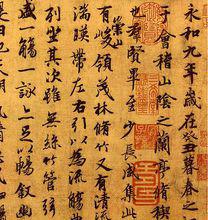 永和九年歲在癸丑暮春之初
于會稽山陰之蘭亭脩稧
也羣賢畢至少長咸集此
有崇山峻領茂林脩竹又有清流
湍暎帶左右引以為流觴
列坐其次雖無絲竹管弦
盛一觴一詠亦足以暢敘幽